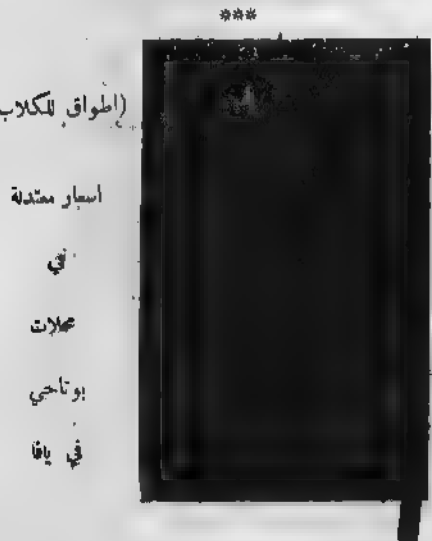 ***
(اطواق للكلاب
اسعار معتدلة
في
محلات
بوتاجي
في يافا